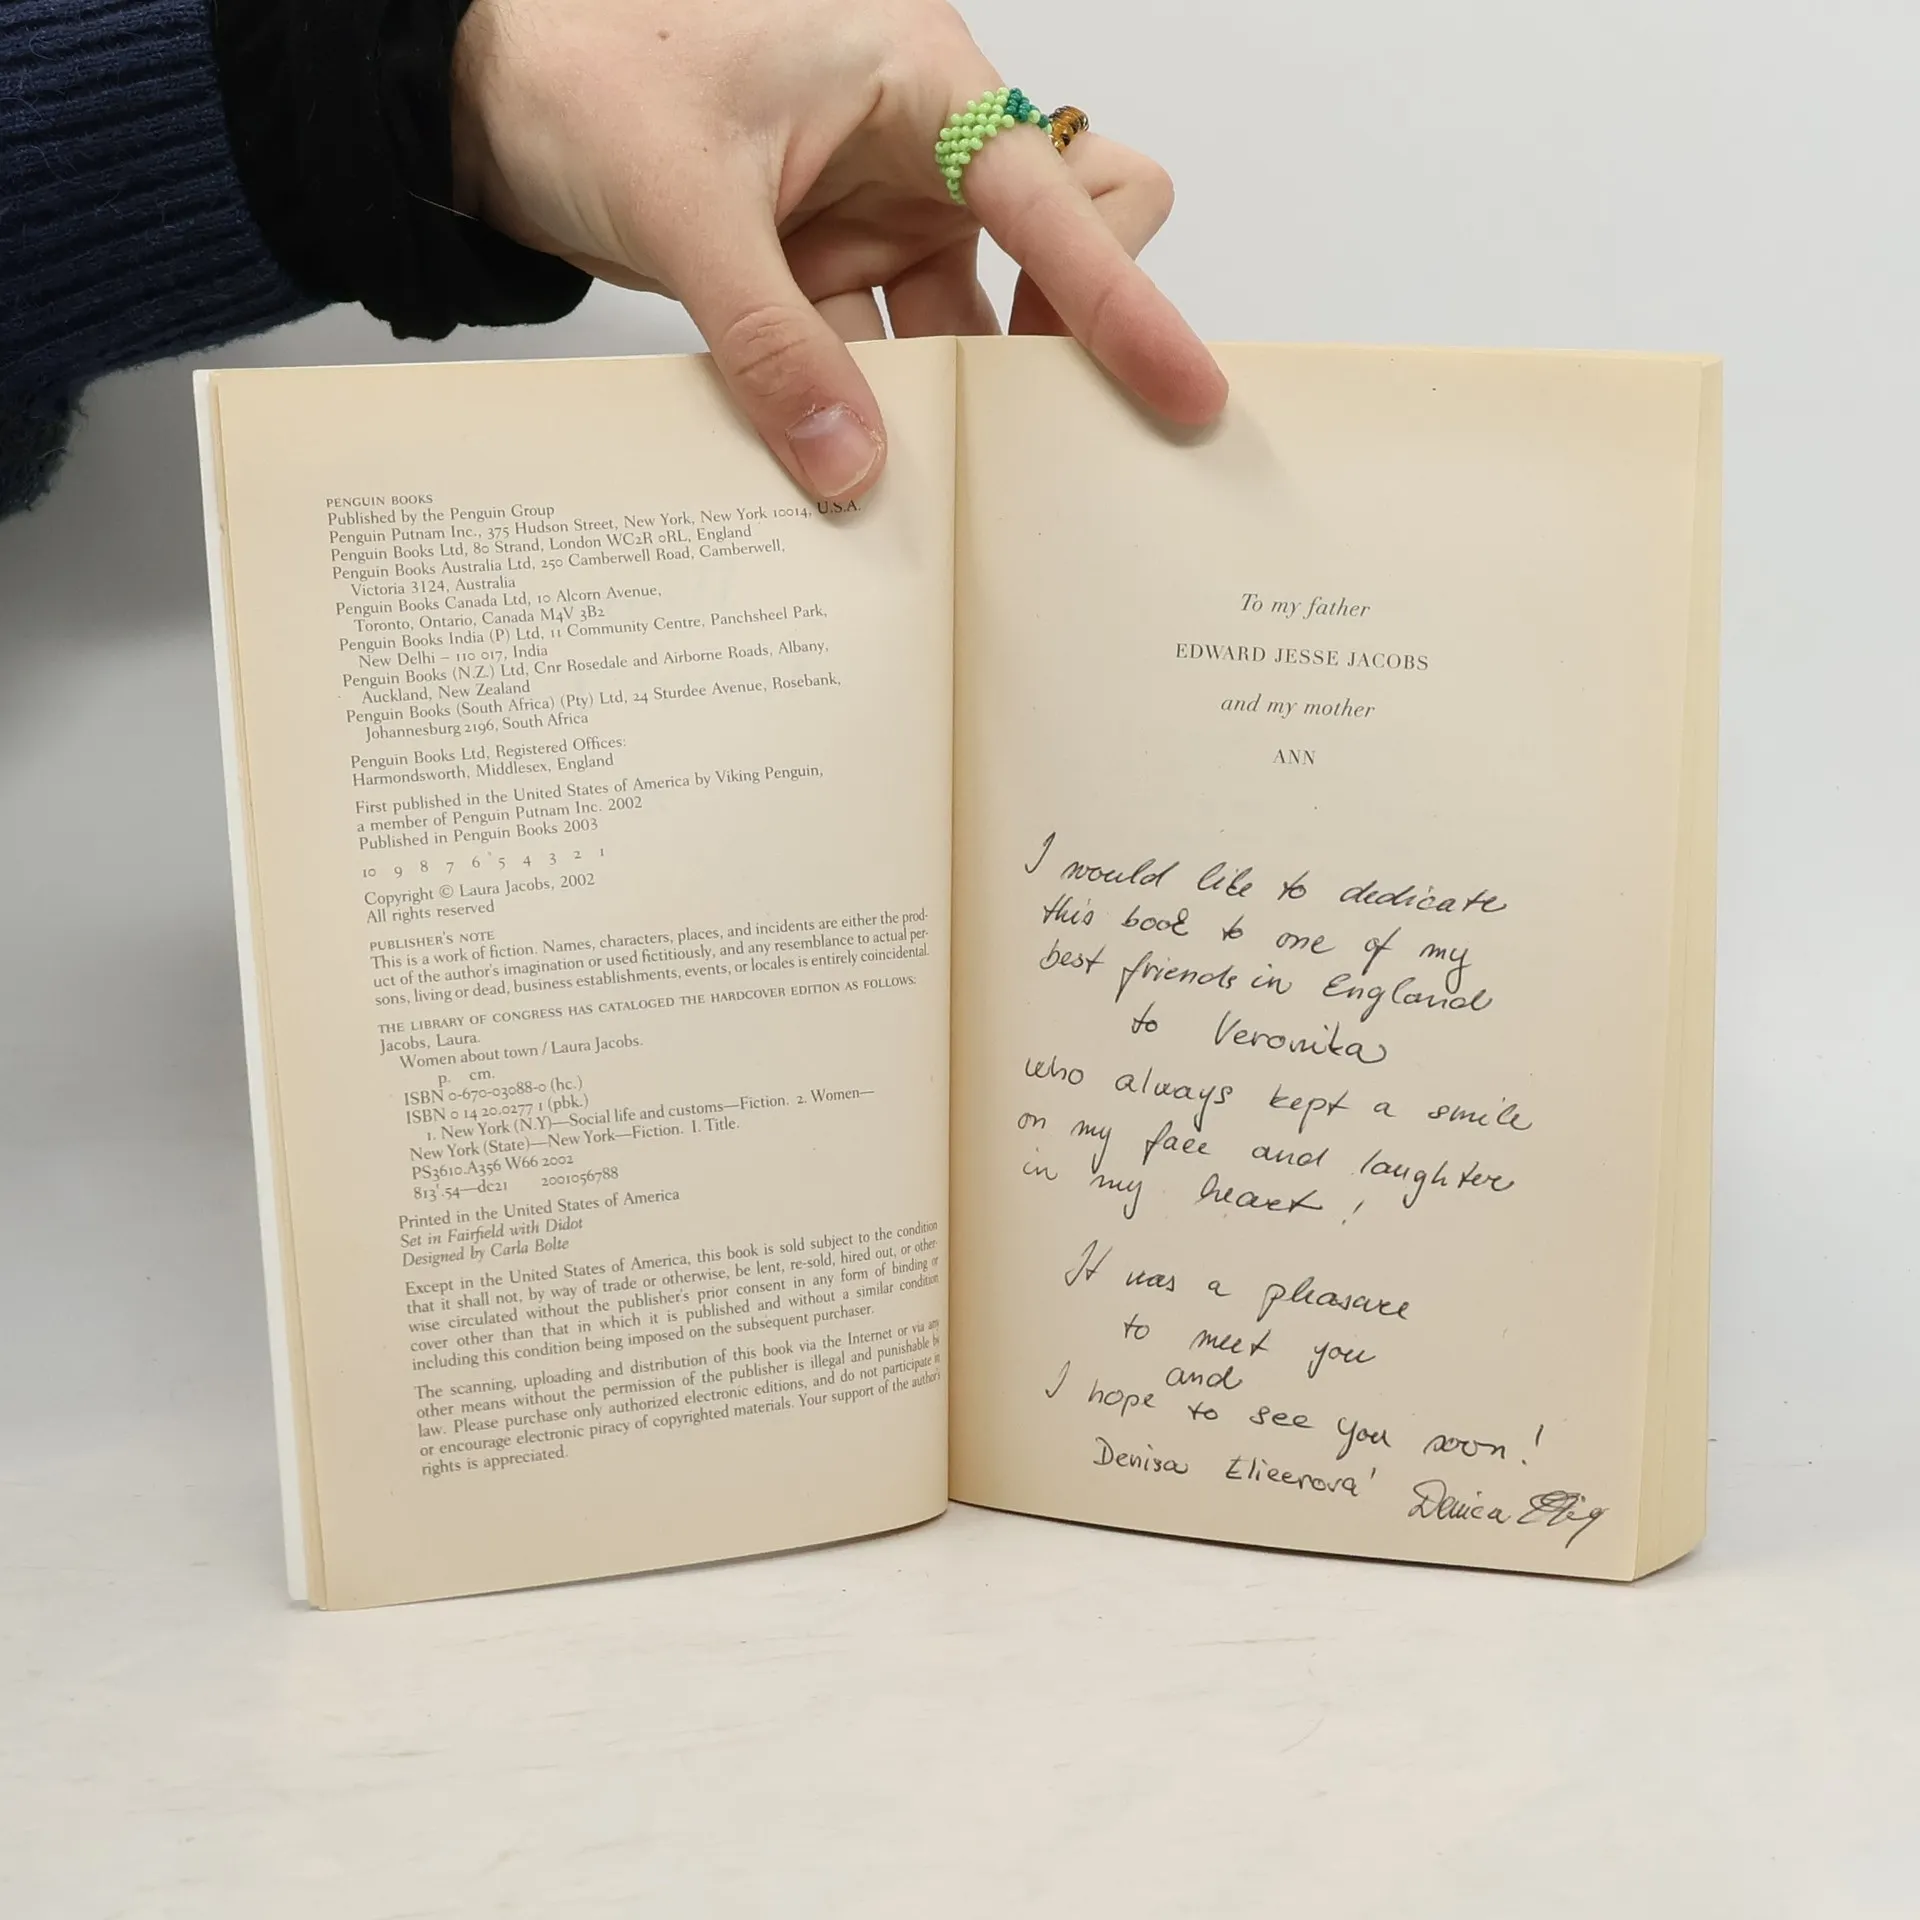 PENGUIN BOOKS
Published by the Penguin Group
Penguin Putnam Inc., 375 Hudson Street, New York, New York 10014, U.S.A.
Penguin Books Ltd, 80 Strand, London WC2R 0RL, England
Penguin Books Australia Ltd, 250 Camberwell Road, Camberwell,
Victoria 3124, Australia
Penguin Books Canada Ltd, 10 Alcorn Avenue,
Toronto, Ontario, Canada M4V 3B2
Penguin Books India (P) Ltd, 11 Community Centre, Panchsheel Park,
New Delhi – 110 017, India
Penguin Books (N.Z.) Ltd, Cnr Rosedale and Airborne Roads, Albany,
Auckland, New Zealand
Penguin Books (South Africa) (Pty) Ltd, 24 Sturdee Avenue, Rosebank,
Johannesburg 2196, South Africa
Penguin Books Ltd, Registered Offices:
Harmondsworth, Middlesex, England
First published in the United States of America by Viking Penguin,
a member of Penguin Putnam Inc. 2002
Published in Penguin Books 2003
10 9 8 7 6 5 4 3 2 1
Copyright © Laura Jacobs, 2002
All rights reserved
PUBLISHER'S NOTE
This is a work of fiction. Names, characters, places, and incidents are either the prod-
uct of the author's imagination or used fictitiously, and any resemblance to actual per-
sons, living or dead, business establishments, events, or locales is entirely coincidental.
THE LIBRARY OF CONGRESS HAS CATALOGED THE HARDCOVER EDITION AS FOLLOWS:
Jacobs, Laura.
Women about town / Laura Jacobs.
p. cm.
ISBN 0-670-03088-0 (hc.)
ISBN 0 14 20.0277 1 (pbk.)
1. New York (N.Y)—Social life and customs—Fiction. 2. Women—
New York (State)—New York—Fiction. I. Title.
PS3610.A356 W66 2002
813'.54—dc21 2001056788
Printed in the United States of America
Set in Fairfield with Didot
Designed by Carla Bolte
Except in the United States of America, this book is sold subject to the condition
that it shall not, by way of trade or otherwise, be lent, re-sold, hired out, or other-
wise circulated without the publisher's prior consent in any form of binding or
cover other than that in which it is published and without a similar condition
including this condition being imposed on the subsequent purchaser.
The scanning, uploading and distribution of this book via the Internet or via any
other means without the permission of the publisher is illegal and punishable by
law. Please purchase only authorized electronic editions, and do not participate in
or encourage electronic piracy of copyrighted materials. Your support of the author's
rights is appreciated.
To my father
EDWARD JESSE JACOBS
and my mother
ANN
I would like to dedicate
this book to one of my
best friends in England
to Veronika
who always kept a smile
on my face and laughter
in my heart!
It was a pleasure
to meet you
and
I hope to see you soon!
Denisa